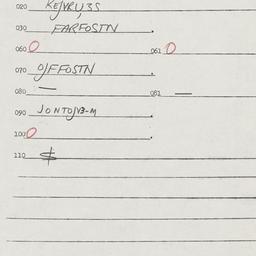 020 KE/VRU3S
030 FARFOSTN .
060 O 061 O
070 O/FFOSTN .
080 — 081 —
090 JONTO/VB-M .
100 O .
110 $